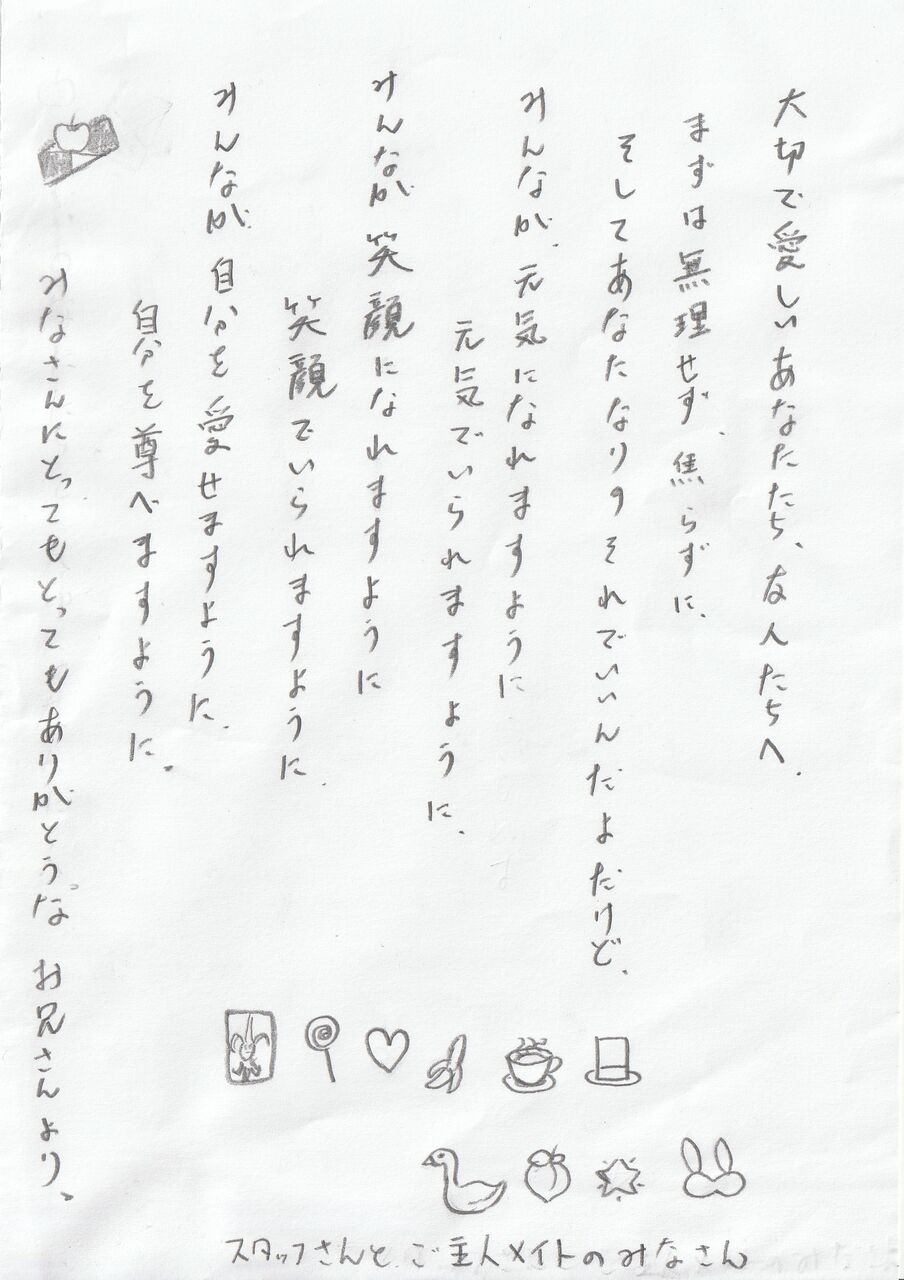 大切で愛しいあなたたち、友人たちへ、
まずは無理せず、焦らずに、
そしてあなたなりのそれでいいんだよだけど、
みんなが、元気になれますように
元気でいられますように、
みんなが笑顔になれますように
笑顔でいられますように、
みんなが自分を愛せますように、
自分を尊べますように。
みなさんにとってもとってもありがとうな お兄さんより、
スタッフさんと ご主人メイトのみなさん